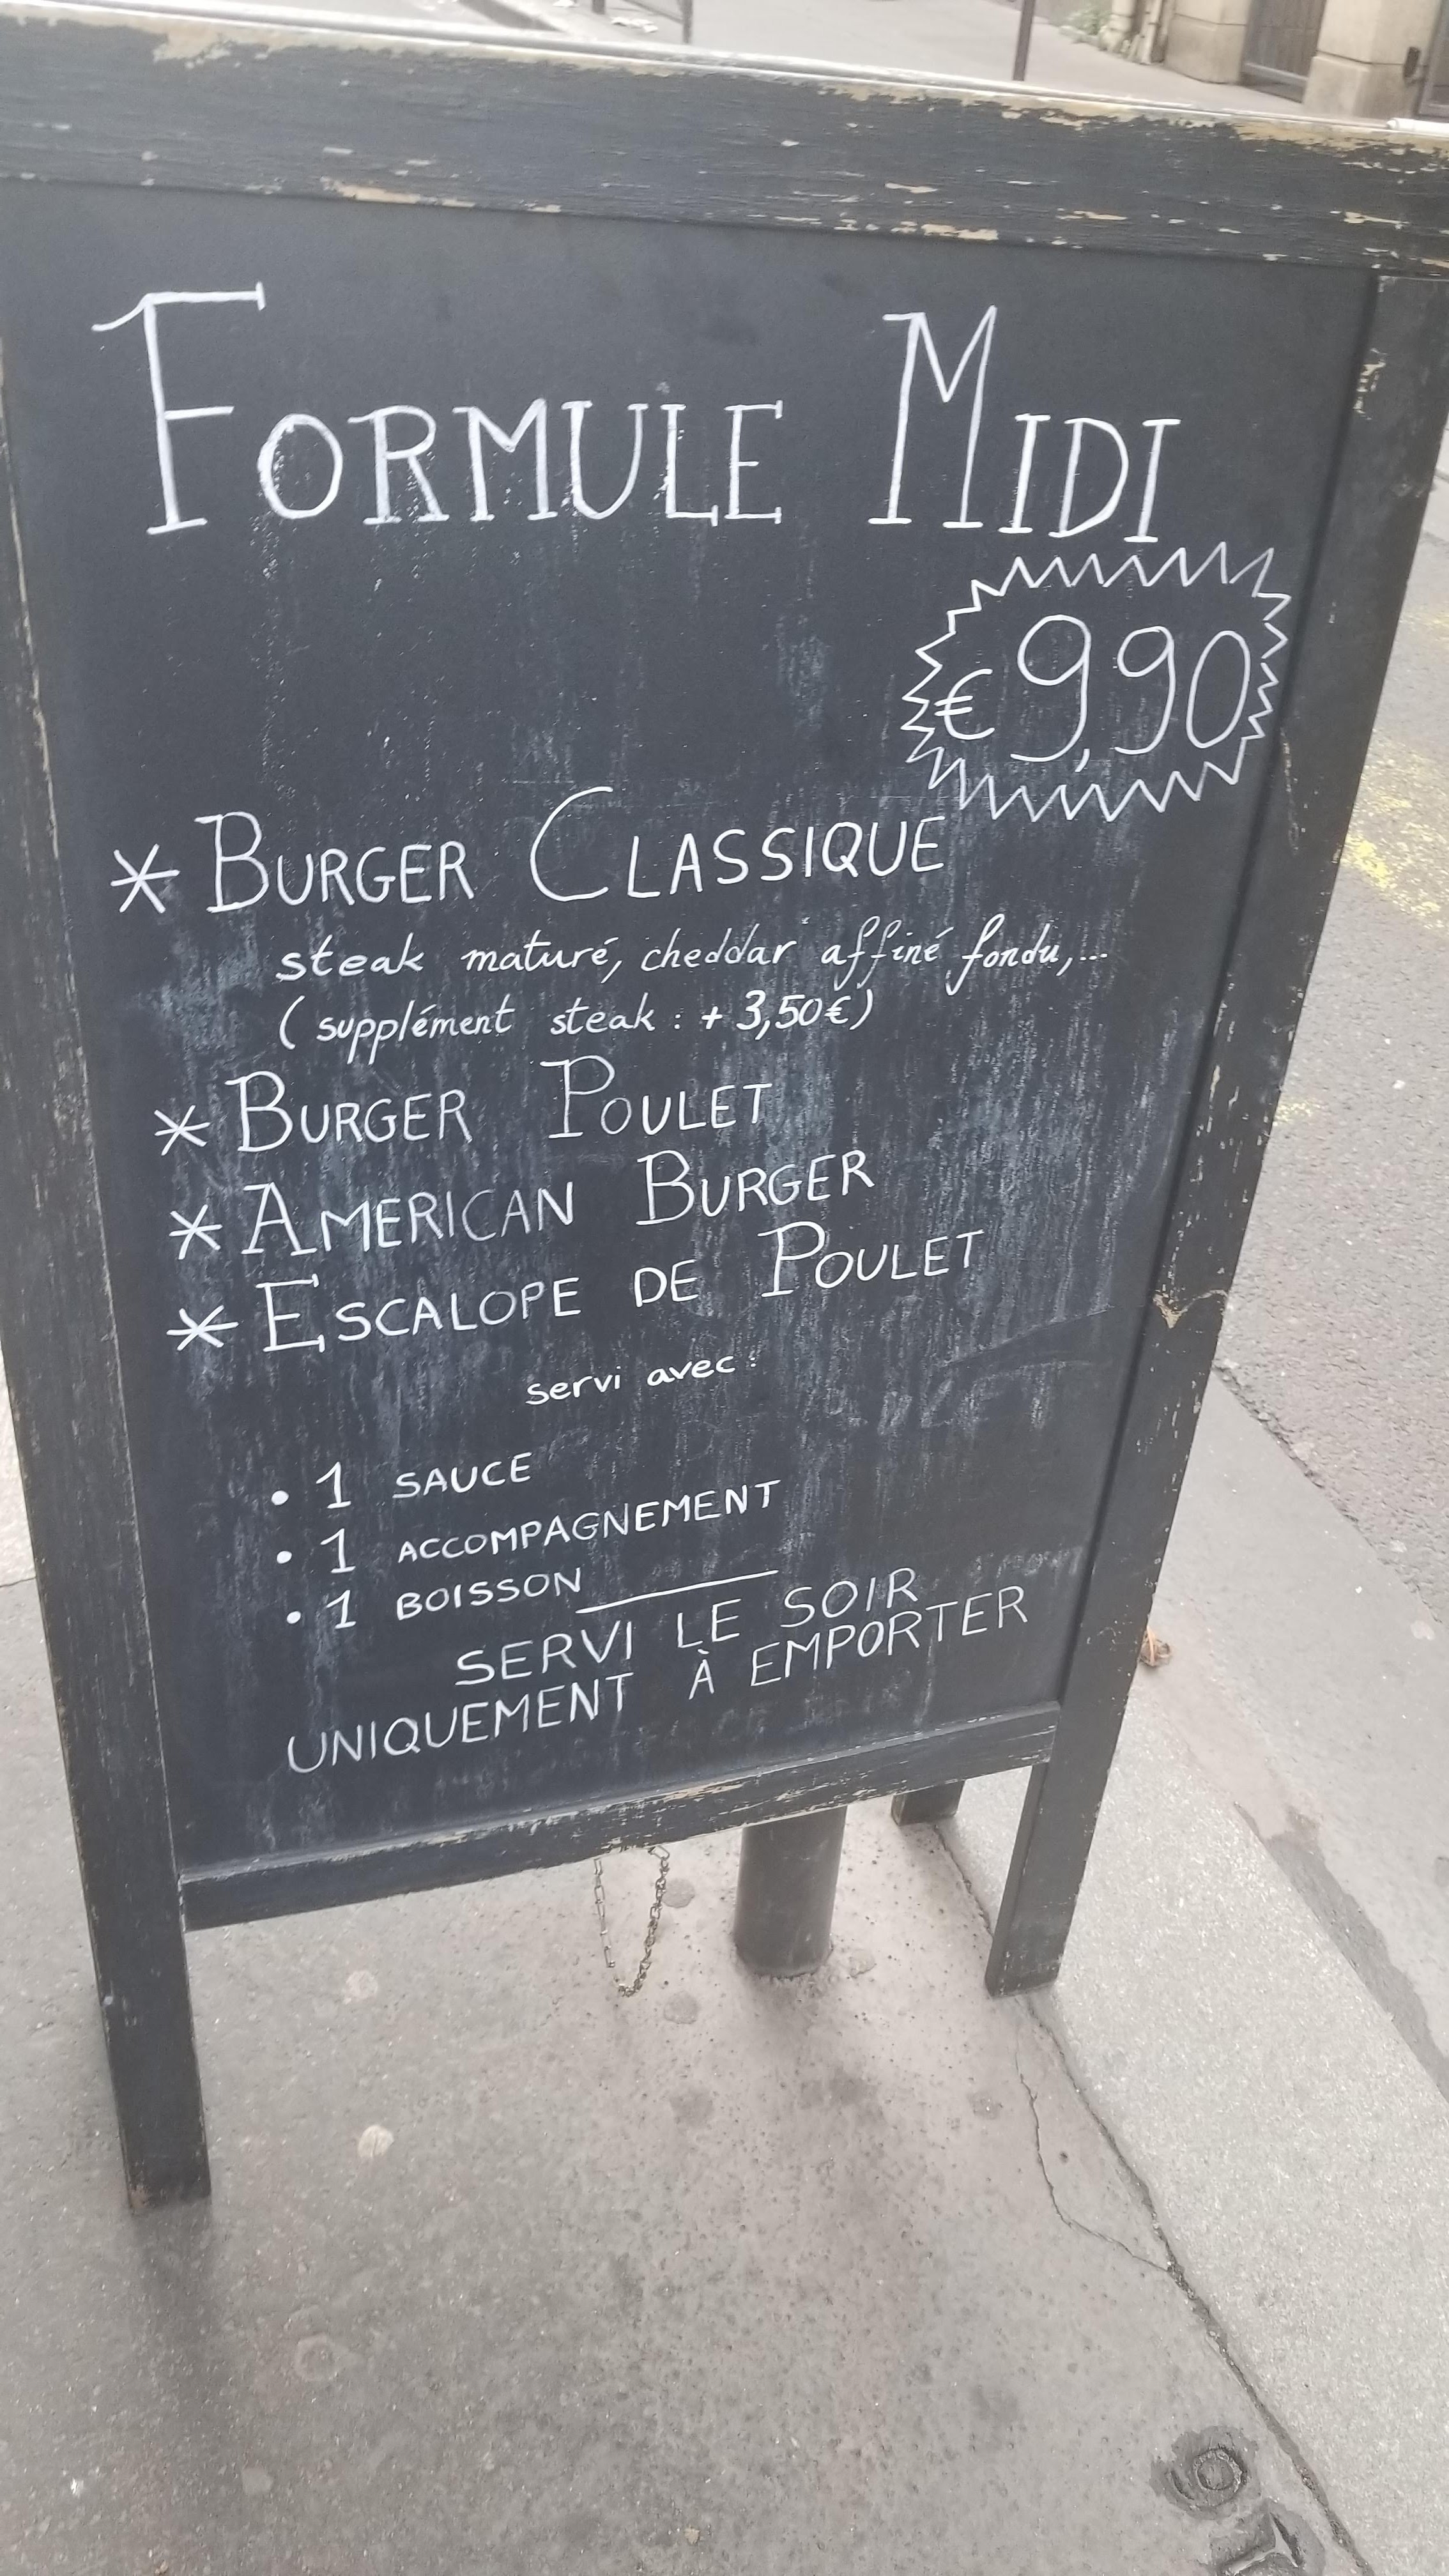 FORMULE MIDI
€ 9,90
* BURGER CLASSIQUE
steak maturé, cheddar affiné fondu,...
(supplément steak : + 3,50€)
* BURGER POULET
* AMERICAN BURGER
* ESCALOPE DE POULET
servi avec :
• 1 SAUCE
• 1 ACCOMPAGNEMENT
• 1 BOISSON
SERVI LE SOIR
UNIQUEMENT À EMPORTER